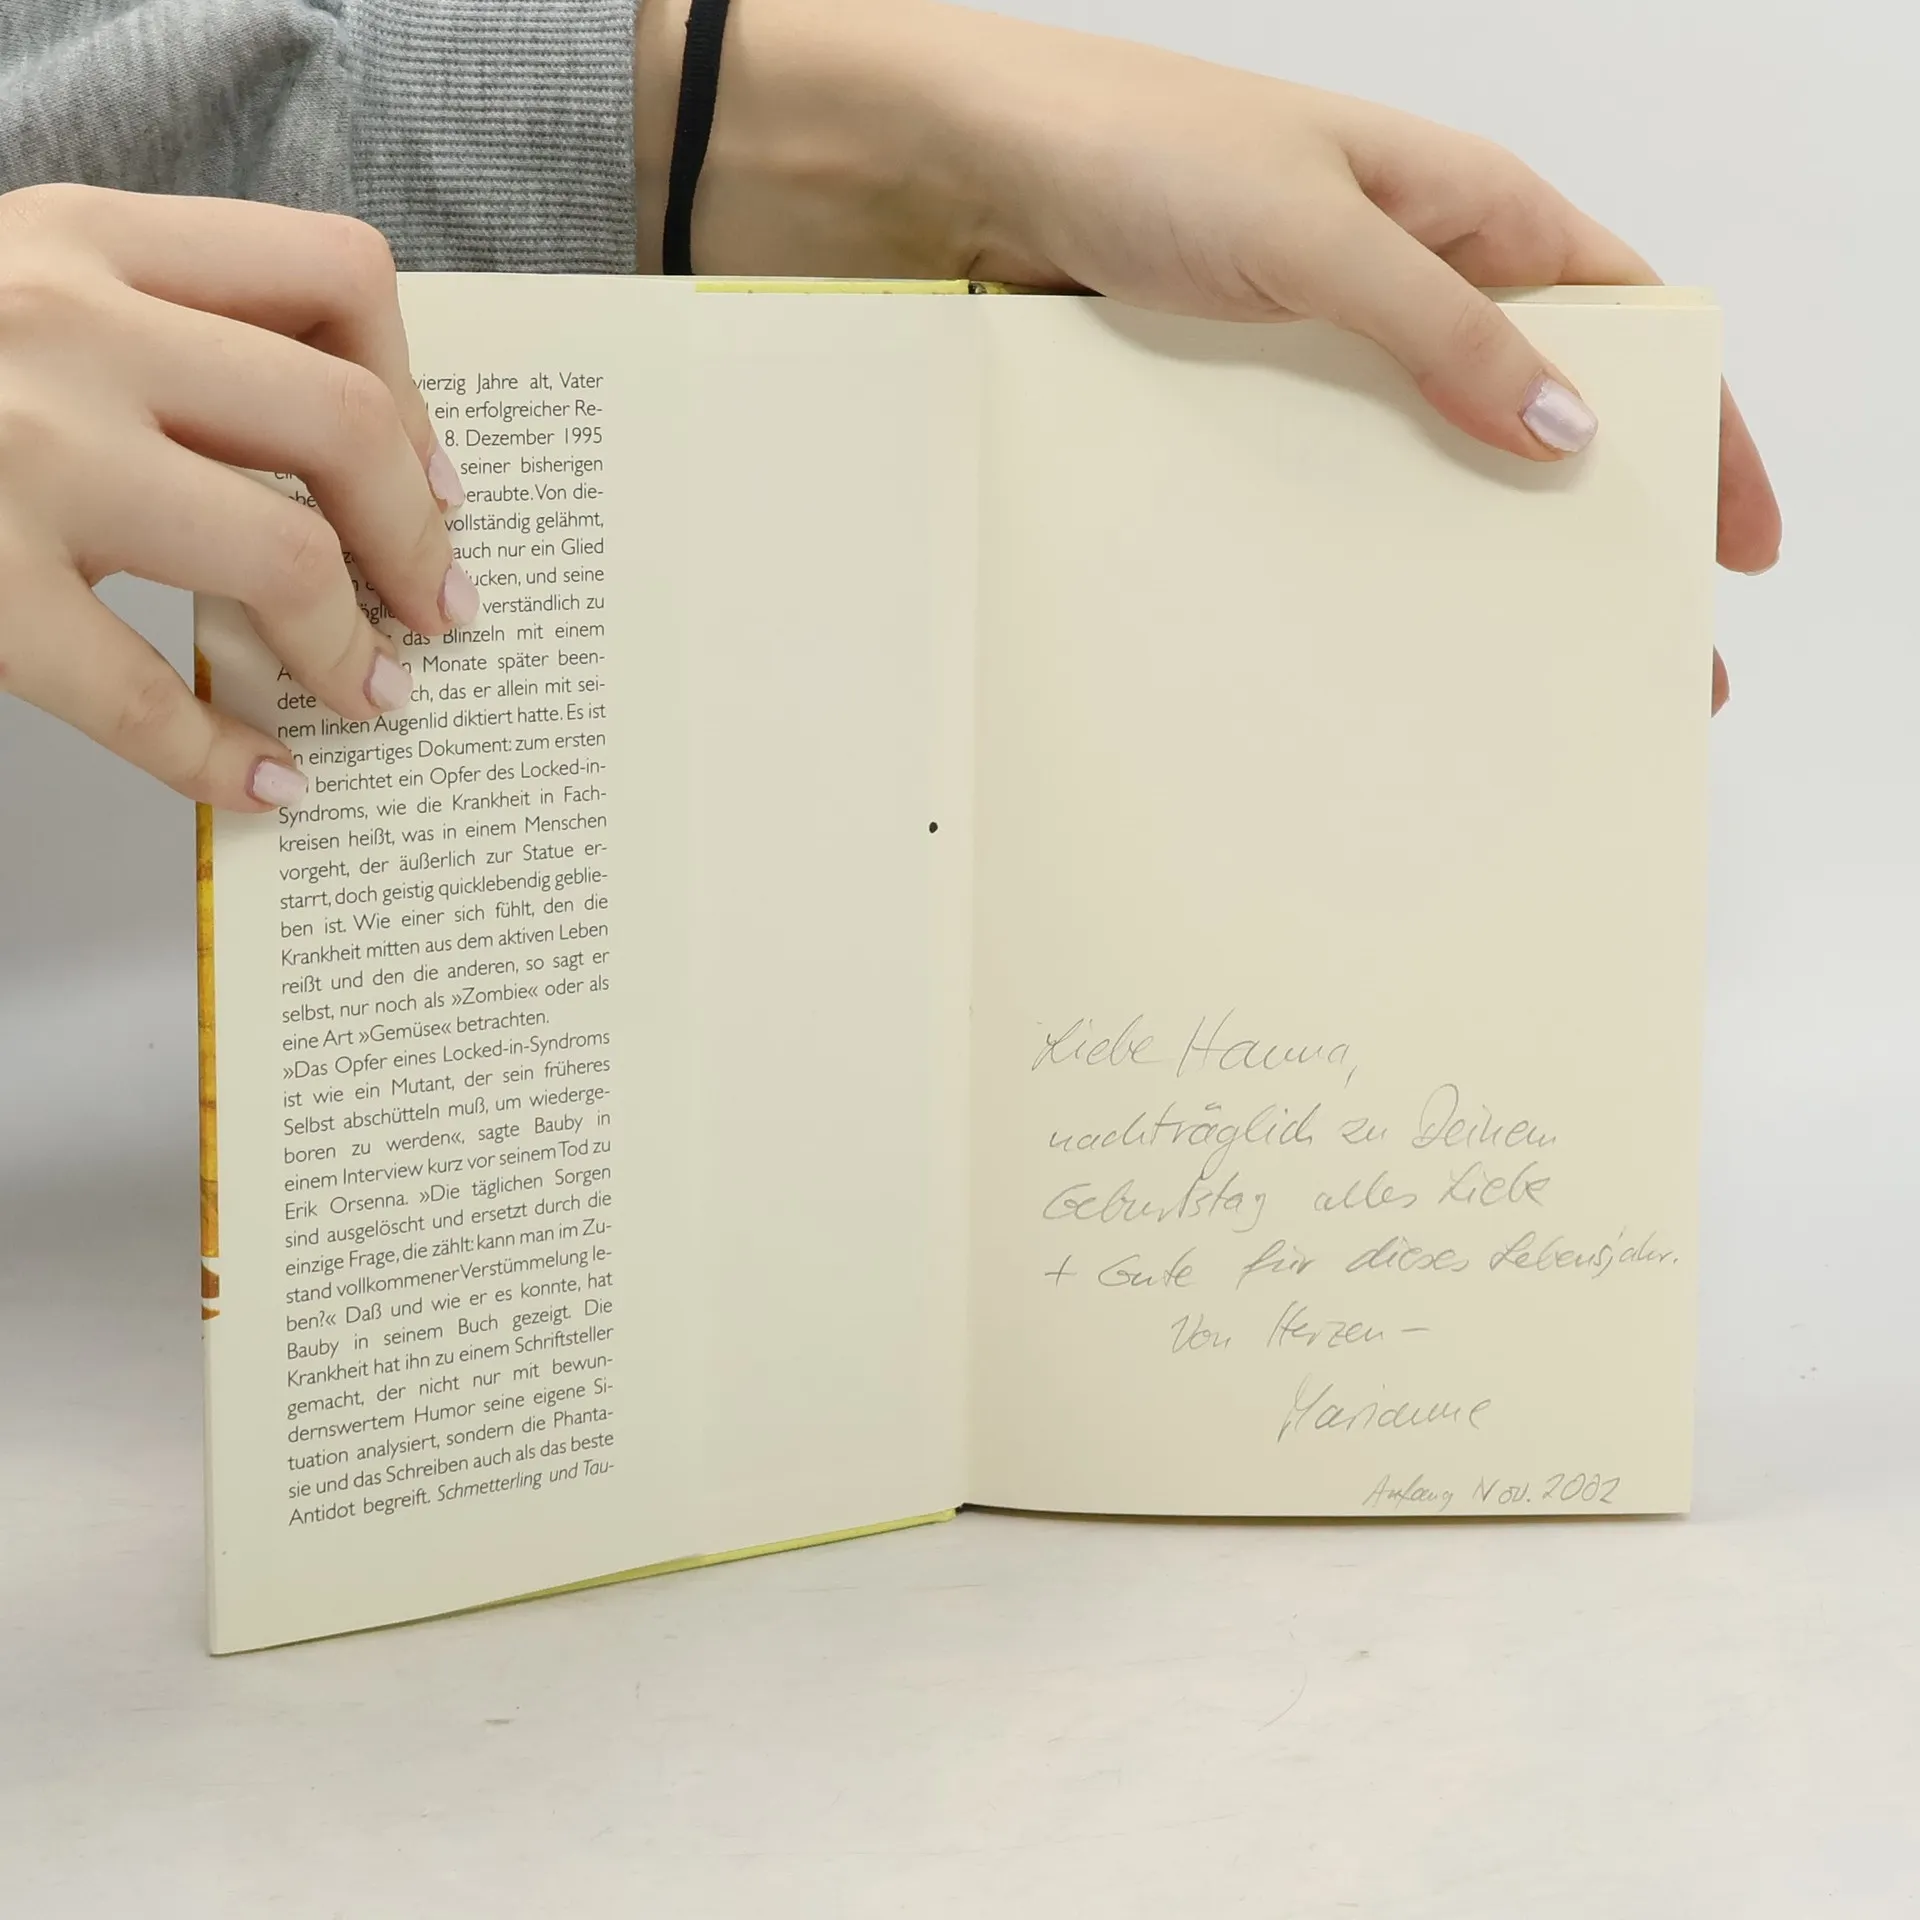 vierzig Jahre alt, Vater
ein erfolgreicher Re-
8. Dezember 1995
seiner bisherigen
beraubte. Von die-
vollständig gelähmt,
auch nur ein Glied
und seine
verständlich zu
das Blinzeln mit einem
Monate später been-
dete das er allein mit sei-
nem linken Augenlid diktiert hatte. Es ist
einzigartiges Dokument: zum ersten
berichtet ein Opfer des Locked-in-
Syndroms, wie die Krankheit in Fach-
kreisen heißt, was in einem Menschen
vorgeht, der äußerlich zur Statue er-
starrt, doch geistig quicklebendig geblie-
ben ist. Wie einer sich fühlt, den die
Krankheit mitten aus dem aktiven Leben
reißt und den die anderen, so sagt er
selbst, nur noch als »Zombie« oder als
eine Art »Gemüse« betrachten.
»Das Opfer eines Locked-in-Syndroms
ist wie ein Mutant, der sein früheres
Selbst abschütteln muß, um wiederge-
boren zu werden«, sagte Bauby in
einem Interview kurz vor seinem Tod zu
Erik Orsenna. »Die täglichen Sorgen
sind ausgelöscht und ersetzt durch die
einzige Frage, die zählt: kann man im Zu-
stand vollkommener Verstümmelung le-
ben?« Daß und wie er es konnte, hat
Bauby in seinem Buch gezeigt. Die
Krankheit hat ihn zu einem Schriftsteller
gemacht, der nicht nur mit bewun-
dernswertem Humor seine eigene Si-
tuation analysiert, sondern die Phanta-
sie und das Schreiben auch als das beste
Antidot begreift. Schmetterling und Tau-
Liebe Hanna,
nachträglich zu Deinem
Geburtstag alles Liebe
+ Gute für dieses Lebensjahr.
Von Herzen –
Marianne
Anfang Nov. 2002